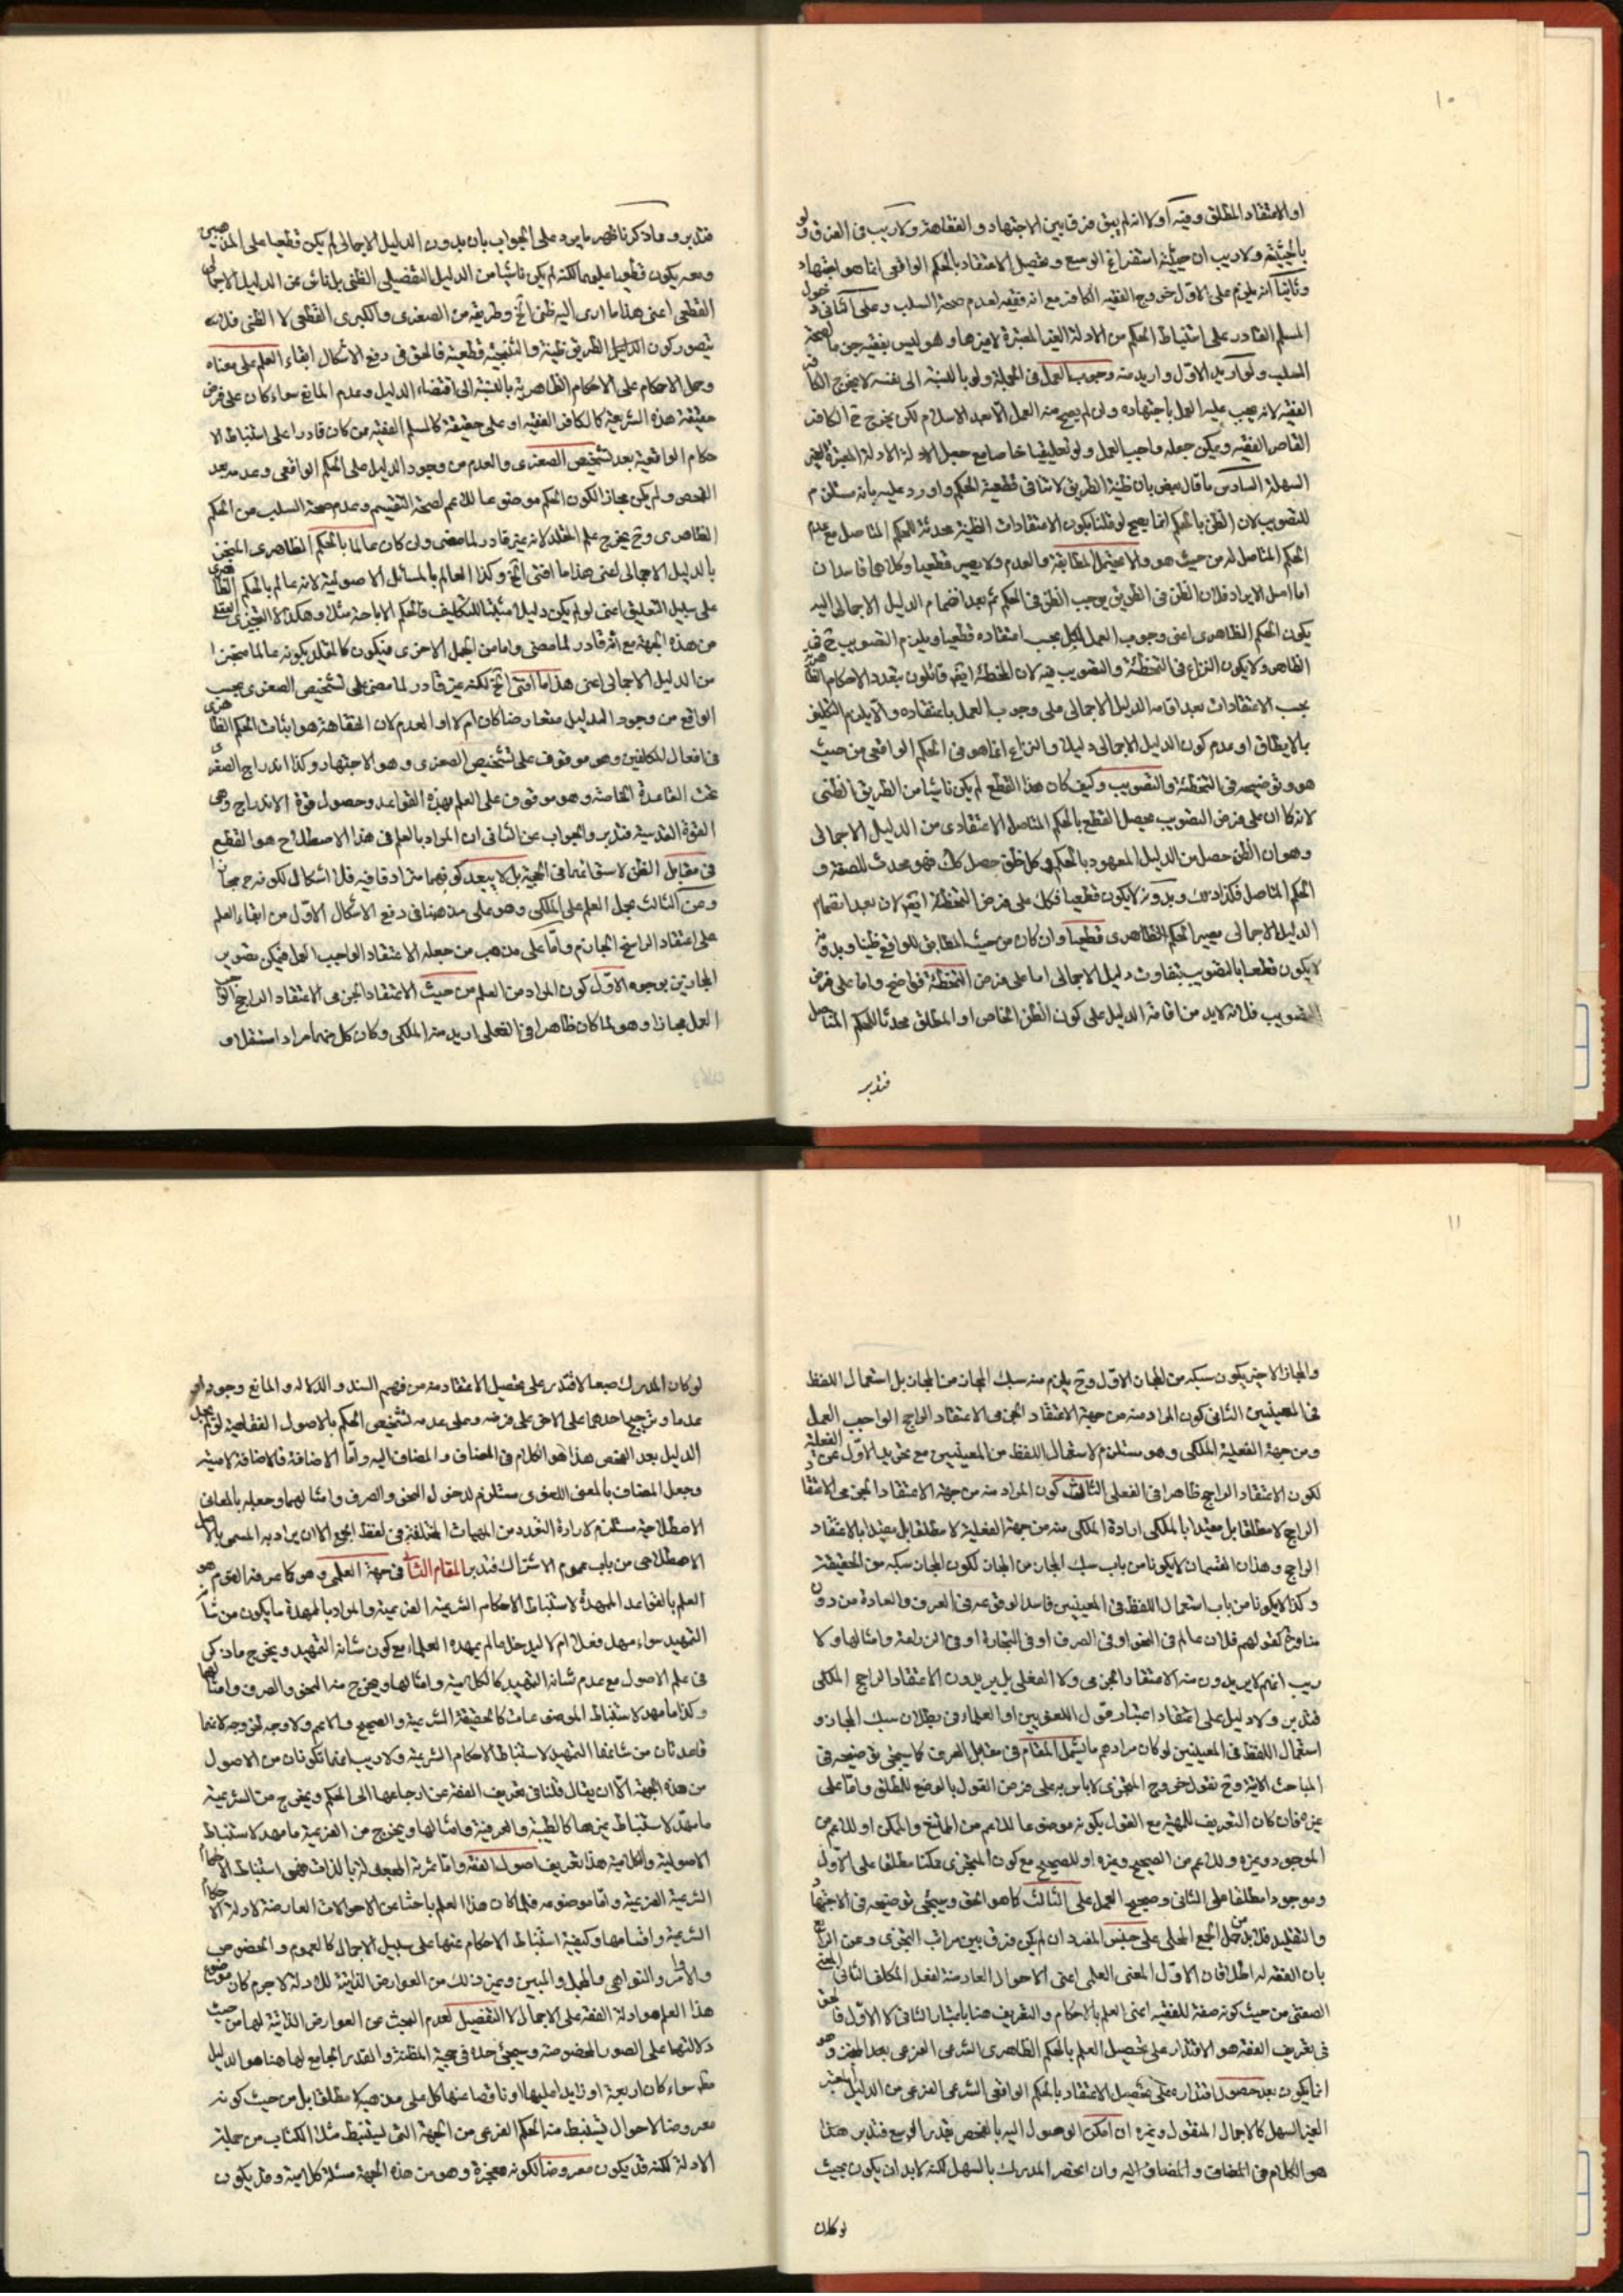 ١٠
او الاعتقاد المطلق وفيه اولا انه لم يبق فرق بين الاجتهاد و الفقاهة ولا ريب فى الفرق ولو
بالحيثية ولا ريب ان حيثية استفراغ الوسع وتحصيل الاعتقاد بالحكم الواقعى انما هو اجتهاد
وثانيا انه يلزم على الاول خروج الفقيه الكافر مع انه فقيه لعدم صحة السلب وعلى الثانى دخول
المسلم القادر على استنباط الحكم من الادلة الغير المعتبرة لا غيرها وهو ليس بفقيه جزما لصحة
السلب ولو اريد الاول واريد منه وجوب العمل فى الجملة ولو بالنسبة الى نفسه لا يخرج الكافر
الفقيه لانه يجب عليه العمل باجتهاده وان لم يصح منه العمل الا بعد الاسلام لكن يخرج ح الكافر
القاصر الفقيه ويمكن جعله واجب العمل ولو تعليقيا خاصا مع جعل الادلة الادلة المعتبرة الغير
السهلة السادس ما قال بعض بان ظنية الطريق لا تنافى قطعية الحكم واورد عليه بانه مستلزم
للتصويب لان الظن بالحكم انما يصح لو قلنا بكون الاعتقادات الظنية محدثة للحكم المتاصل مع عدم
الحكم المتاصل له من حيث هو والا يحتمل المطابقة والعدم ولا يصير قطعيا وكلاهما فاسدان
اما اصل الايراد فلان الظن فى الطريق يوجب الظن فى الحكم ثم بعد انضمام الدليل الاجمالى اليه
يكون الحكم الظاهرى اعنى وجوب العمل لكل بحسب اعتقاده قطعيا ويلزم التصويب ح فى
الظاهر ولا يكون النزاع فى التخطئة والتصويب فيه لان المخطئة ايضا قائلون بتعدد الاحكام الظاهرية
بحسب الاعتقادات بعد اقامة الدليل الاجمالى على وجوب العمل باعتقاده والا يلزم التكليف
بالا يطاق او عدم كون الدليل الاجمالى دليلا والنزاع انما هو فى الحكم الواقعى من حيث
هو وتوضيحه فى التخطئة والتصويب وكيف كان هذا القطع لم يكن ناشيا من الطريق الظنى
لانه كما ان على فرض التصويب يحصل القطع بالحكم المتاصل الاعتقادى من الدليل الاجمالى
وهو ان الظن حصل من الدليل المعهود بالحكم وكل ظن حصل كك فهو محدث للصفة و
الحكم المتاصل فكذا ذلك وبدونه لا يكون قطعيا فكك على فرض التخطئة ايضا لان بعد انضمام
الدليل الاجمالى يصير الحكم الظاهرى قطعيا وان كان من حيث المطابق للواقع ظنيا وبدونه
لا يكون قطعيا بالتصويب بتفاوت دليل الاجمالى اما على فرض التخطئة فواضح واما على فرض
التصويب فلانه لابد من اقامة الدليل على كون الظن الخاص او المطلق محدثا للحكم المتاصل
فتدبر
فتدبر و ماذكرنا ظهر ما يرد على الجواب بان بدون الدليل الاجمالى لم يكن قطعيا على المذهبين
ومعه يكون قطعيا عليهما لكنه لم يكن ناشيا من الدليل التفصيلى الظنى بل ناش من الدليل الاجمالى
القطعى اعنى هذا ما ادى اليه ظنى الخ وطريقه من الصغرى والكبرى القطعى لا الظنى فلا
يتصور كون الدليل الطريق ظنية والنتيجة قطعية فالحق فى دفع الاشكال ابقاء العلم على معناه
وحمل الاحكام على الاحكام الظاهرية بالنسبة الى اقتضاء الدليل وعدم المانع سواء كان على فرض
حقيقة هذه الشريعة كالكافر الفقيه او على حقيقة كالمسلم الفقيه من كان قادرا على استنباط الا
حكام الواقعية بعد تشخيص الصغرى والعدم من وجود الدليل على الحكم الواقعى وعدمه بعد
الفحص ولم يكن مجازا لكون الحكم موضوعا للاعم لصحة التقسيم وعدم صحة السلب من الحكم
الظاهرى وح يخرج علم المقلد لانه غير قادر لما مضى وان كان عالما بالحكم الظاهرى المنجز
بالدليل الاجمالى اعنى هذا ما افتى الخ وكذا العالم بالمسائل الاصولية لانه عالم بالحكم الظاهرى
على سبيل التعليق اعنى لو لم يكن دليل مثبتا للتكليف فالحكم الاباحة مثلا وهكذا لا التنجيزى
من هذه الجهة مع انه قادر لما مضى واما من الجهل الاخرى فيكون كالمقلد بكونه عالما منجزا
من الدليل الاجمالى اعنى هذا ما افتى الخ لكنه غير قادر لما مضى على تشخيص الصغرى بحسب
الواقع من وجود الدليل متعارضا كان ام لا او العدم لان الفقاهة هو اثبات الحكم الظاهرى
فى افعال المكلفين وهو موقوف على تشخيص الصغرى وهو الاجتهاد وكذا اندراج الصغرى
تحت القاعدة الخاصة وهو موقوف على العلم بهذه القواعد وحصول قوة الاندراج وهى
القوة القدسية فتدبر والجواب عن الثانى ان المراد بالعلم فى هذا الاصطلاح هو القطع
فى مقابل الظن لاستقامتها فى الحجية بل لا يبعد كونهما مترادفا فيه فلا اشكال لكونه ح مجازا
وعن الثالث بحمل العلم على الملكى وهو على مذهبنا فى دفع الاشكال الاول من ابقاء العلم
على اعتقاد الراسخ الجازم واما على مذهب من جعله الاعتقاد الواجب العمل فيمكن تصوير
المجازين بوجوه الاول كون المراد من العلم من حيث الاعتقاد الجزمى الاعتقاد الراجح الواجب
العمل مجازا وهو لما كان ظاهرا فى الفعلى اريد منه الملكى وكان كل منهما مراد استقلالا و
١١
والمجاز الاخير يكون سبكه من المجاز الاول وح يلزم منه سبك المجاز من المجاز بل استعمال اللفظ
فى المعنيين الثانى كون المراد منه من جهة الاعتقاد الجزمى الاعتقاد الراجح الواجب العمل
ومن جهة الفعلية الملكى وهو مستلزم لاستعمال اللفظ من المعنيين مع تجريد الاول عن الفعلية
لكون الاعتقاد الراجح ظاهرا فى الفعلى الثالث كون المراد منه من جهة الاعتقاد الجزمى الاعتقاد
الراجح لا مطلقا بل مقيدا بالملكى ارادة الملكى منه من جهة الفعلية لا مطلقا بل مقيدا بالاعتقاد
الراجح وهذان القسمان لا يكونا من باب سبك المجاز من المجاز لكون المجاز سبكه من الحقيقة
وكذا لا يكونا من باب استعمال اللفظ فى المعنيين فاسدا لوقوعه فى العرف والعادة من دون
كقولهم فلان عالم فى النحو او فى الصرف او فى التجارة او فى الزراعة وامثالها ولا
ريب انهم لا يريدون منه الاعتقاد الجزمى ولا الفعلى بل يريدون الاعتقاد الراجح الملكى
فتدبر ولا دليل على اعتقاد اعتبار قول اللغويين او العلماء فى بطلان سبك المجاز و
استعمال اللفظ فى المعنيين لو كان مرادهم ما يشمل المقام فى مقابل العرف كما سيجئ توضيحه فى
المباحث الاتية وح نقول خروج المتجزى لا باس به على فرض القول بالوضع للمطلق واما على
غيره فان كان التعريف للمهية مع القول بكونه موضوعا للاعم من المانع والممكن او للاعم من
الموجود وغيره وللاعم من الصحيح وغيره او للصحيح مع كون المتجزى ممكنا مطلقا على الاول
وموجودا مطلقا على الثانى وصحيح العمل على الثالث كما هو الحق وسيجئ توضيحه فى الاجتهاد
والتقليد فلابد من حمل الجمع المحلى على جنس المفرد ان لم يكن فرق بين مراتب التجزى وعن الرابع
بان الفقه له اطلاقان الاول المعنى العلمى اعنى الاحوال العارضة لفعل المكلف الثانى المعنى
الصفتى من حيث كونه صفة للفقيه اعنى العلم بالاحكام والتعريف هنا باعتبار الثانى لا الاول فالحق
فى تعريف الفقه هو الاقتدار على تحصيل العلم بالحكم الظاهرى الشرعى الفرعى بعد الفحص وهو
انما يكون بعد حصول اقتداره على تحصيل الاعتقاد بالحكم الواقعى الشرعى الفرعى من الدليل المعتبر
الغير السهل كالاجمال المنقول وغيره ان امكن الوصول اليه بالفحص بقدر الوسع فتدبر هذا
هو الكلام فى المضاف و المضاف اليه وان انحصر المدرك بالسهل لكنه لابد ان يكون بحيث
لو كان
لو كان المدرك صعبا لاقتدر على تحصيل الاعتقاد منه من فهم السند و الدلالة و المانع وجودا و
عدما وترجيح احدهما على الاخر على فرضه وعلى عدمه تشخيص الحكم بالاصول الفقاهية لو لم يجد
الدليل بعد الفحص هذا هو الكلام فى المضاف و المضاف اليه واما الاضافة فالاضافة لامية
وجعل المضاف بالمعنى اللغوى مستلزم لدخول النحو والصرف وامثالهما وجعله بالمعانى
الاصطلاحية مستلزم لارادة التعدد من المهيات المختلفة فى لفظ الجمع الا ان يراد به المسمى بالاصل
الاصطلاحى من باب عموم الاشتراك فتدبر المقام الثانى فى جهة العلمى وهو كما عرفه القوم هو
العلم بالقواعد الممهدة لاستنباط الاحكام الشرعية الفرعية والمراد بالممهدة ما يكون من شانه
التمهيد سواء مهد فعلا ام لا ليدخل ما لم يمهده العلماء مع كون شانه التمهيد ويخرج ما ذكر
فى علم الاصول مع عدم شانه التمهيد كالكلامية وامثالها ويخرج منه النحو والصرف وامثالهما
وكذا ما مهد لاستنباط الموضوعات كالحقيقة الشرعية والصحيح والاعم ولا وجه لخروجه لانهما
قاعدتان من شانهما التمهيد لاستنباط الاحكام الشرعية ولا ريب انهما تكونان من الاصول
من هذه الجهة الا ان يقال قلنا فى تعريف الفقه عن ارجاعها الى الحكم ويخرج من الشرعية
ما مهد لاستنباط غيرها كالطبية والعرفية وامثالها ويخرج من الفرعية ما مهد لاستنباط
الاصولية والكلامية هذا تعريف اصول الفقه واما ثمرته المجعولة بالذات فهى استنباط الاحكام
الشرعية الفرعية واما موضوعه فلما كان هذا العلم باحثا عن الاحوالات العارضة لادلة الاحكام
الشرعية واقسامها وكيفية استنباط الاحكام عنها على سبيل الاجمال كالعموم و الخصوص
والاوامر والنواهى والمجمل والمبين وغير ذلك من العوارض الذاتية للادلة لاجرم كان موضوع
هذا العلم هو ادلة الفقه على الاجمال لا التفصيل لعدم البحث عن العوارض الذاتية لهما من حيث
دلالتها على الصور المخصوصة وسيجئ حده فى حجية المظنة و القدر الجامع لها هنا هو الدليل
سواء كان اربعة او زايدا عليها او ناقصا عنها كل على مذهبه لا مطلقا بل من حيث كونه
معروضا لاحوال تستنبط منه الحكم الفرعى من الجهة التى ليستنبط مثلا الكتاب من جملة
الادلة لكنه قد يكون معروضا لكونه معجزة وهو من هذه الجهة مسئلة كلامية وقد يكون